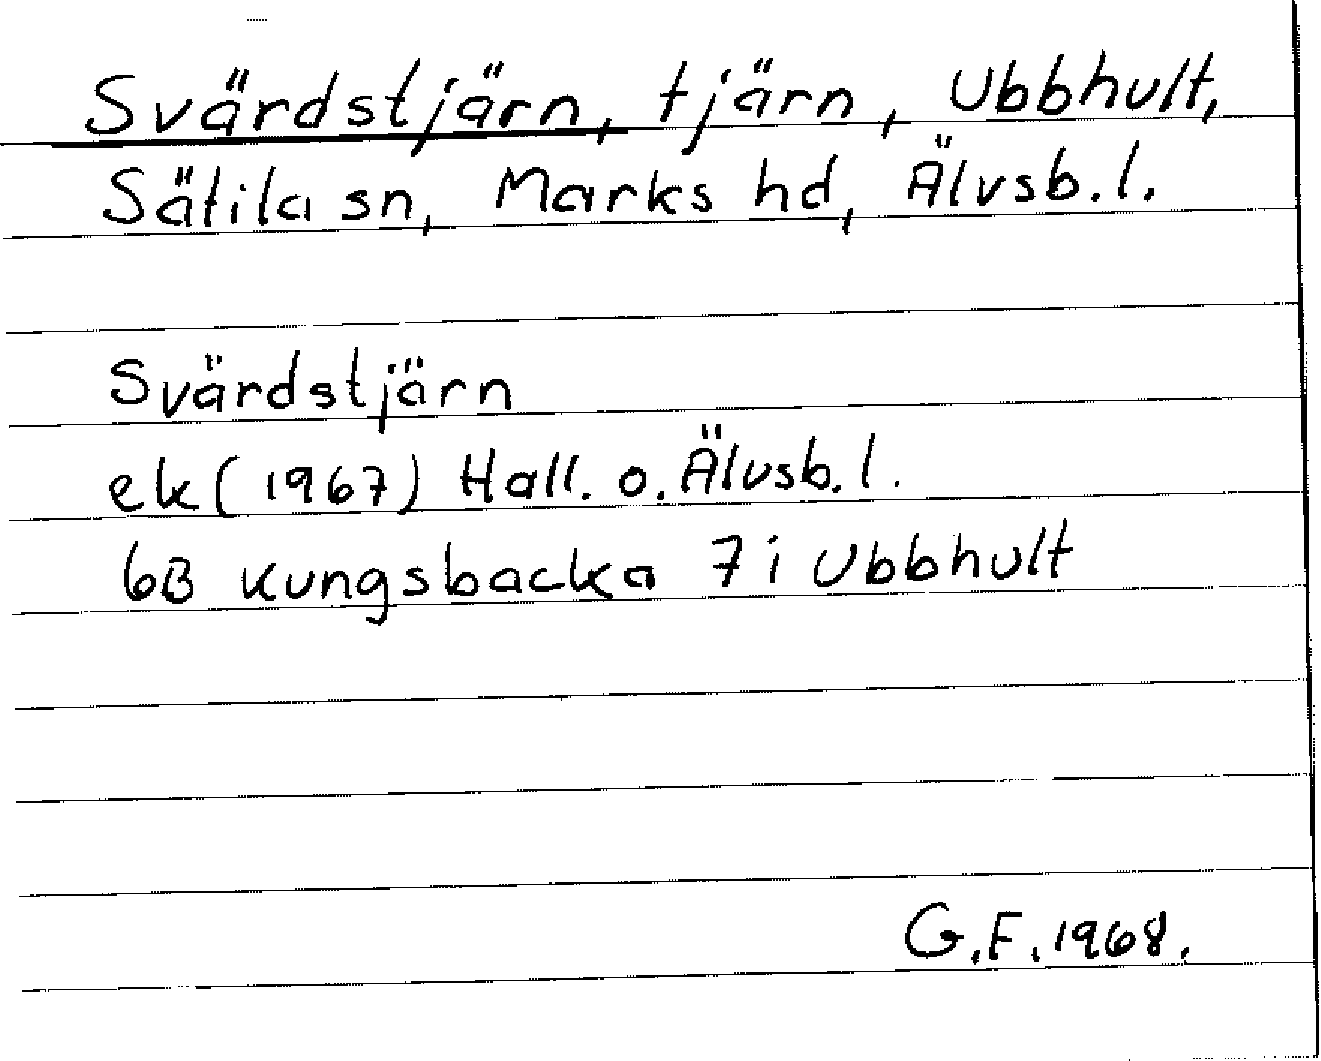 Svärdstjärn, tjärn, Ubbhult,
Sätila sn, Marks hd, Älvsb.l.
Svärdstjärn
ek(1967) Hall. o. Älvsb.l.
6B Kungsbacka 7i Ubbhult
G.F.1968.